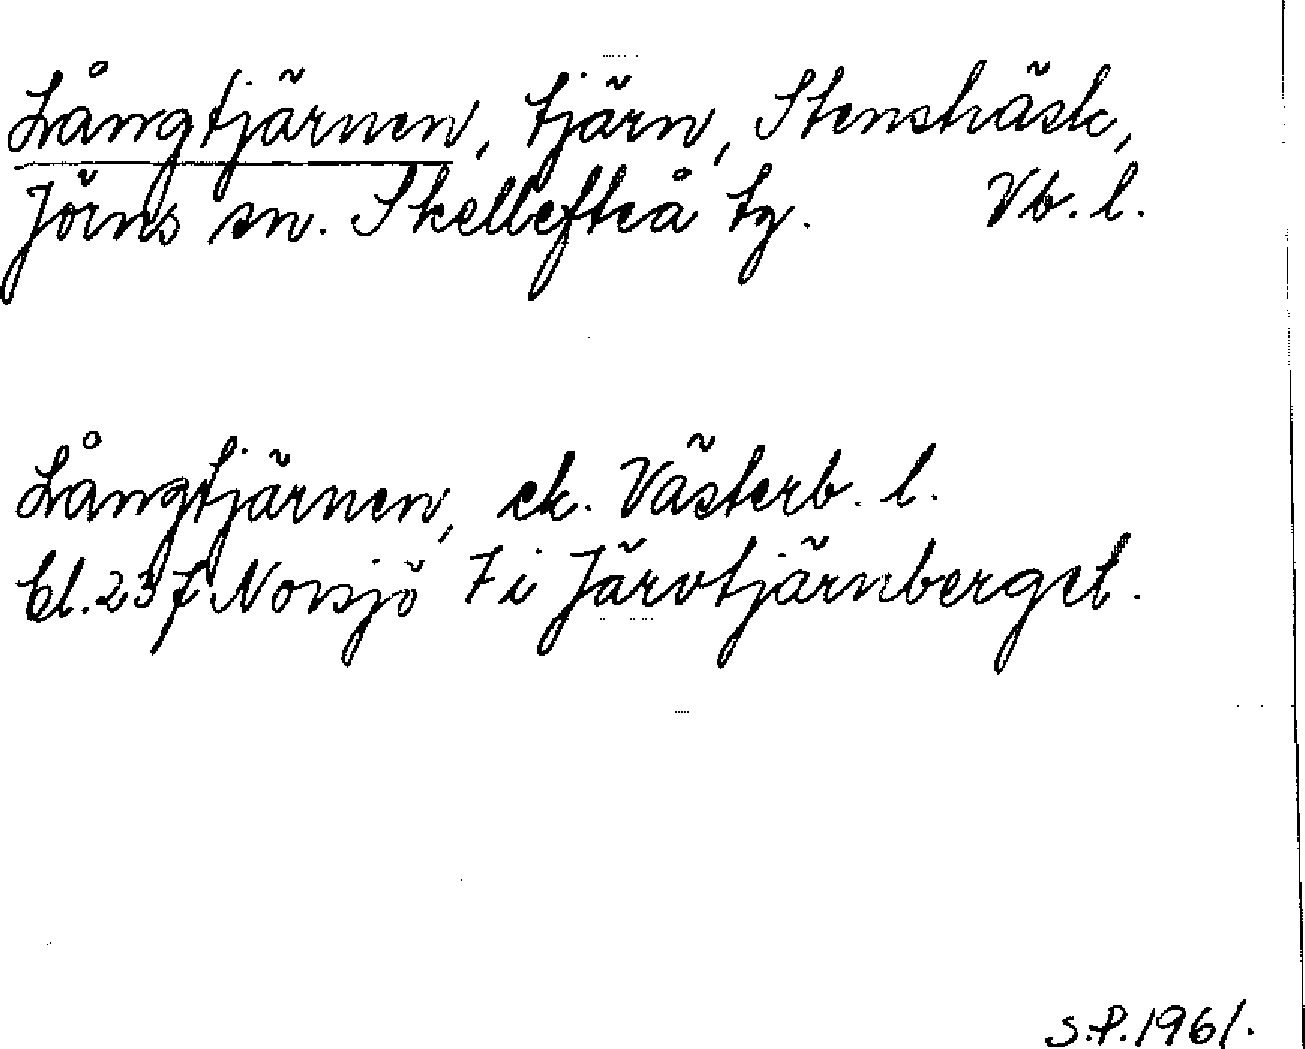 Långtjärnen, tjärn, Stensträsk,
Jörns sn. Skellefteå tg. Vb. l.
Långtjärnen, ek. Västerb. l.
bl. 237 Norsjö 7 i Järvtjärnberget.
S.P. 1961.